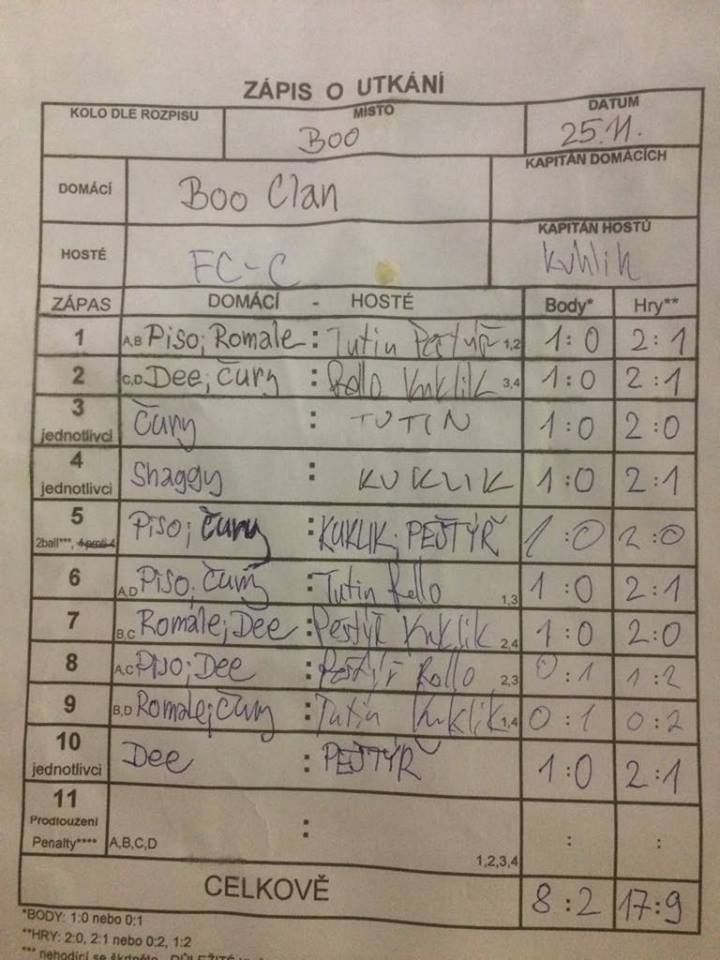 ZÁPIS O UTKÁNÍ
KOLO DLE ROZPISU MÍSTO DATUM
Boo 25.11.
DOMÁCÍ Boo Clan KAPITÁN DOMÁCÍCH
HOSTÉ FC-C KAPITÁN HOSTŮ
Kuklik
ZÁPAS DOMÁCÍ - HOSTÉ Body* Hry**
1 A,B Piso; Romale : Tutin Peštýř 1,2 1:0 2:1
2 C,D Dee; Čury : Rollo Kuklik 3,4 1:0 2:1
3 jednotlivci Čury : TUTIN 1:0 2:0
4 jednotlivci Shaggy : KUKLIK 1:0 2:1
5 2ball***, 4 proti 4 Piso; Čury : KUKLIK; PEŠTÝŘ 1:0 2:0
6 A,D Piso; Čury : Tutin Rollo 1,3 1:0 2:1
7 B,C Romale; Dee : Peštýř Kuklik 2,4 1:0 2:0
8 A,C Piso; Dee : Peštýř Rollo 2,3 0:1 1:2
9 B,D Romale; Čury : Tutin Kuklik 1,4 0:1 0:2
10 jednotlivci Dee : PEŠTÝŘ 1:0 2:1
11 Prodloužení : : :
Penalty**** A,B,C,D 1,2,3,4
CELKOVĚ 8:2 17:9
*BODY: 1:0 nebo 0:1
**HRY: 2:0, 2:1 nebo 0:2, 1:2
*** nehodící se škrtněte